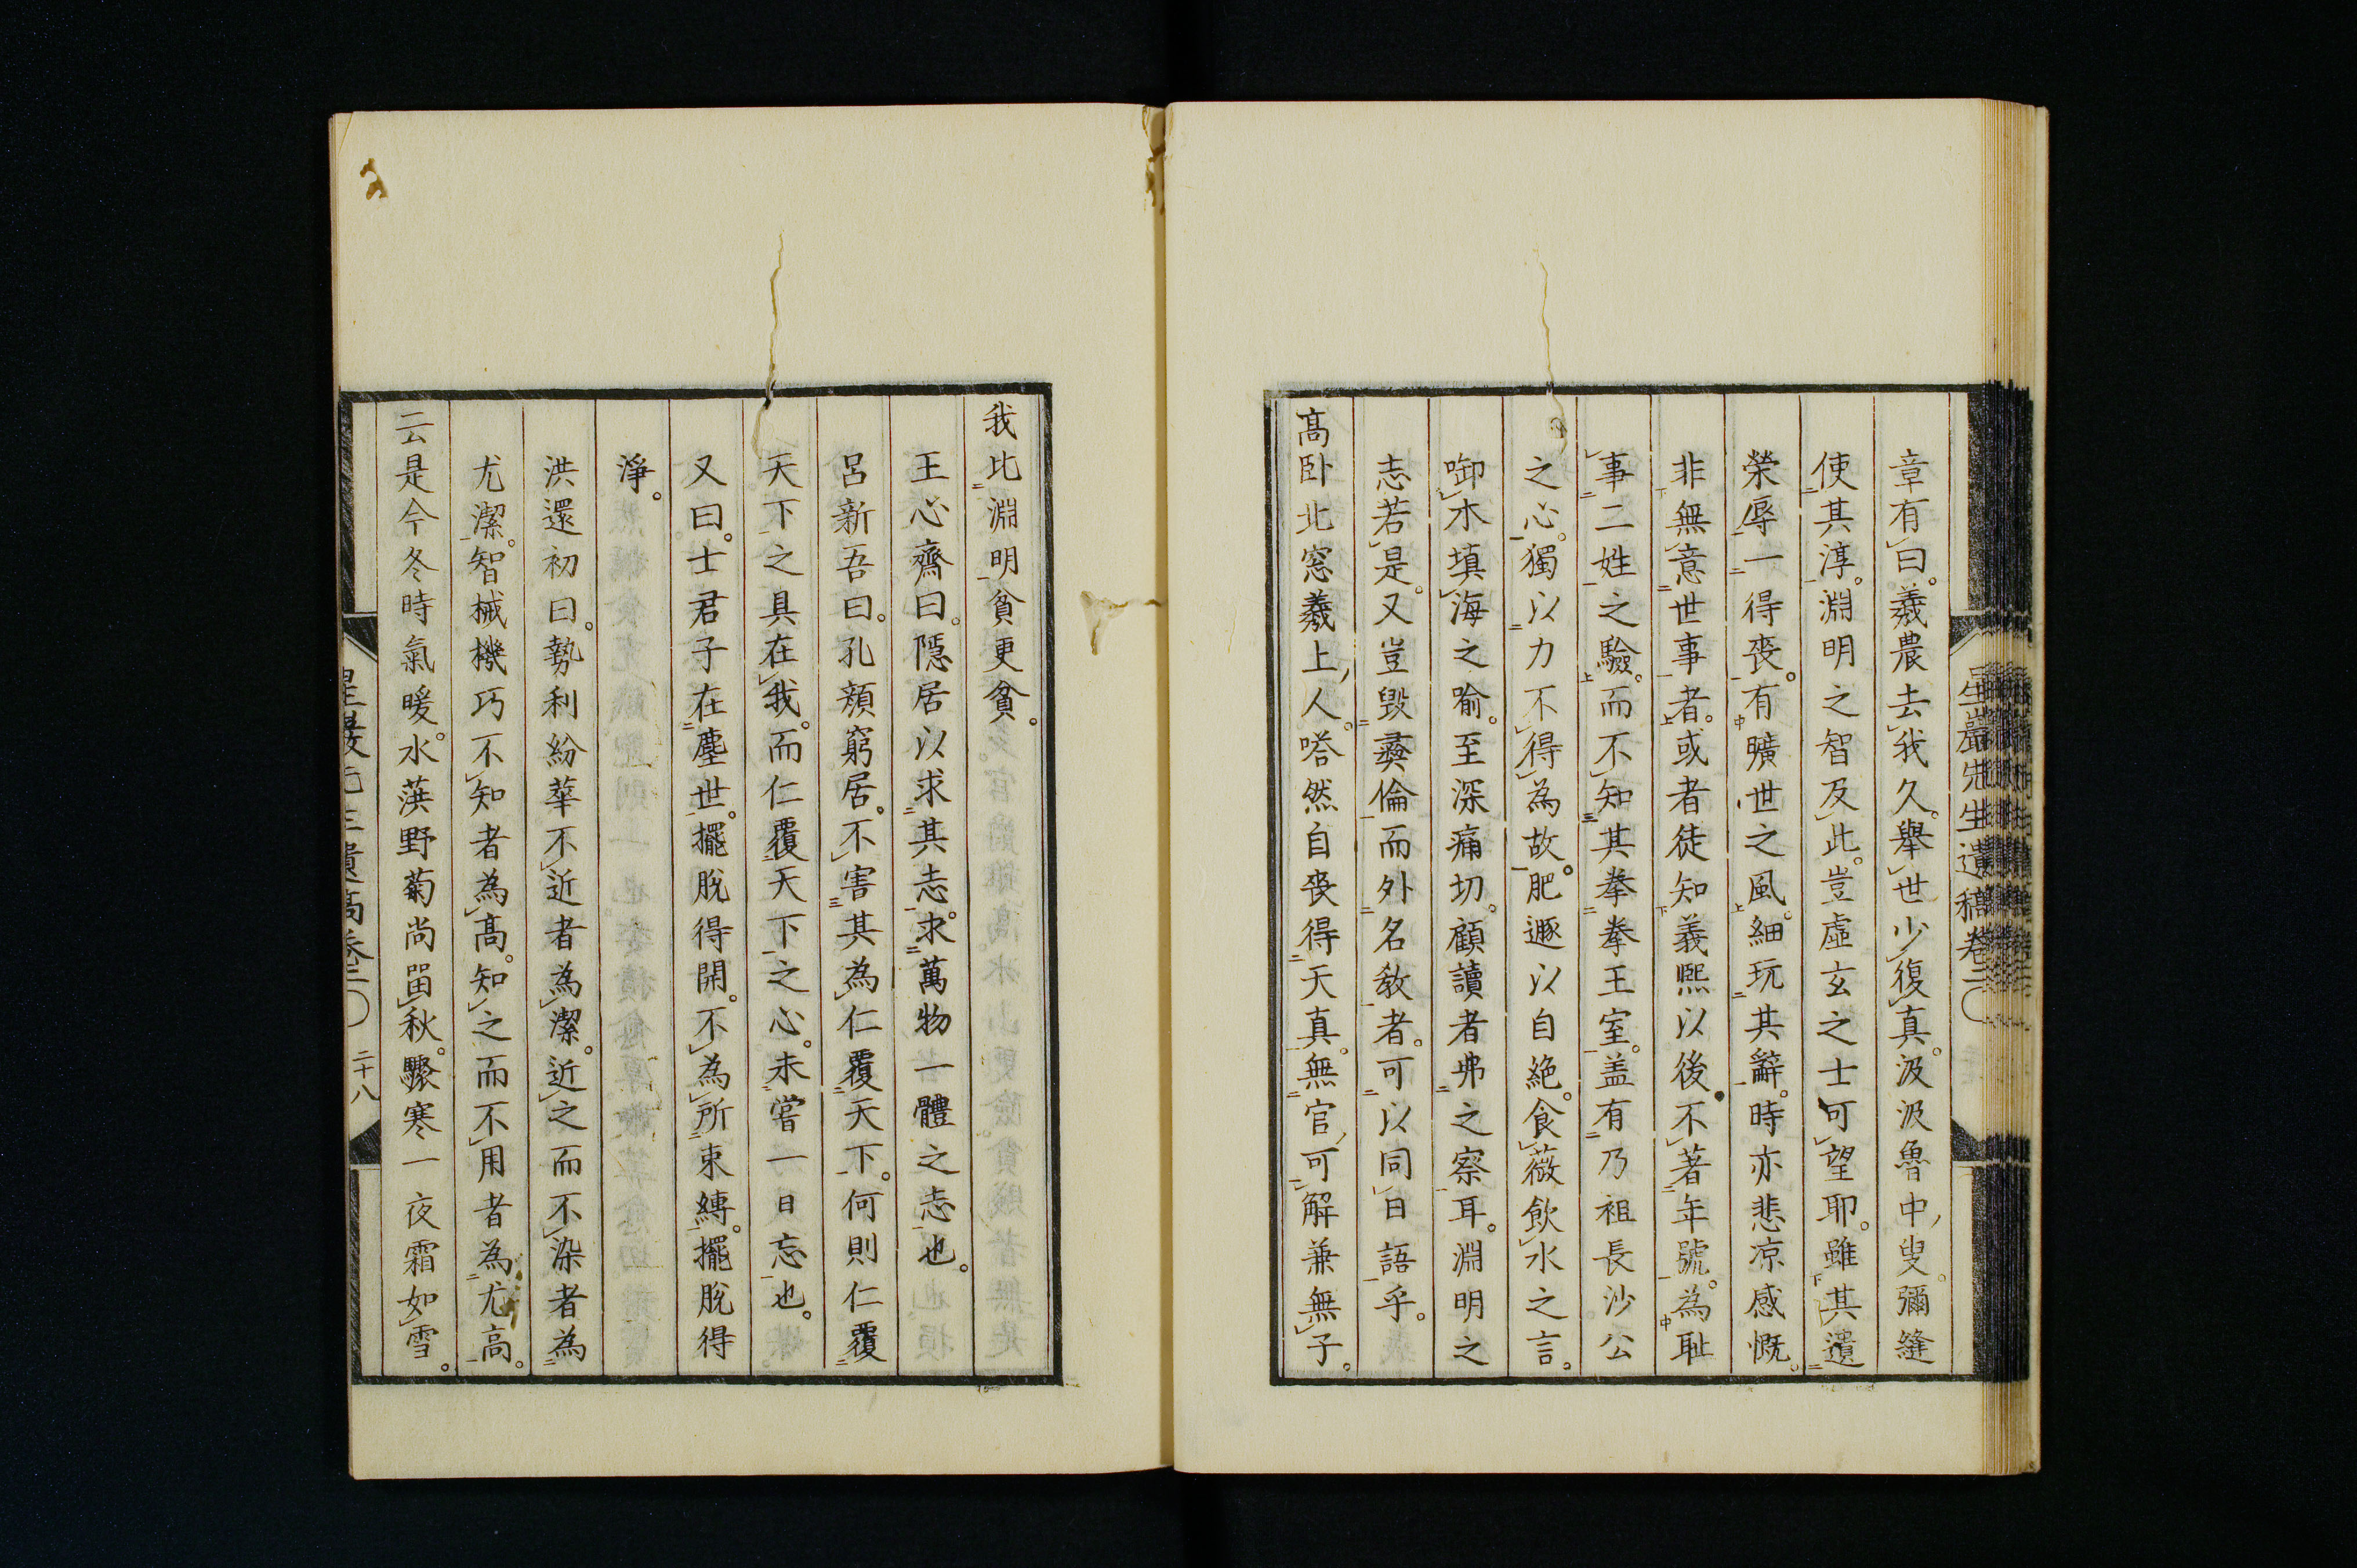 星巖先生遺稿卷二
章有曰。羲農去我久。舉世少復真。汲汲魯中叟。彌縫
使其淳。淵明之智及此。豈虛玄之士可望耶。雖其遺
榮辱一得喪。有曠世之風。細玩其辭。時亦悲凉感慨。
非無意世事者。或者徒知義熙以後。不著年號。為恥
事二姓之驗。而不知其拳拳王室。盖有乃祖長沙公
之心。獨以力不得為故。肥遯以自絕。食薇飲水之言。
啣木填海之喻。至深痛切。顧讀者弗之察耳。淵明之
志若是。又豈毀彝倫而外名教者。可以同日語乎。
高卧北窓羲上人。嗒然自喪得天真。無官可解兼無子。
我比淵明貧更貧。
王心齋曰。隱居以求其志。求萬物一體之志也。
呂新吾曰。孔顏窮居。不害其為仁覆天下。何則仁覆
天下之具在我。而仁覆天下之心。未嘗一日忘也。
又曰。士君子在塵世。擺脫得開。不為所束縛。擺脫得
淨。
洪還初曰。勢利紛華不近者為潔。近之而不染者為
尤潔。智械機巧不知者為高。知之而不用者為尤高。
云是今冬時氣暖。水葓野菊尚畱秋。驟寒一夜霜如雪。
星巖先生遺稿卷二
二十八